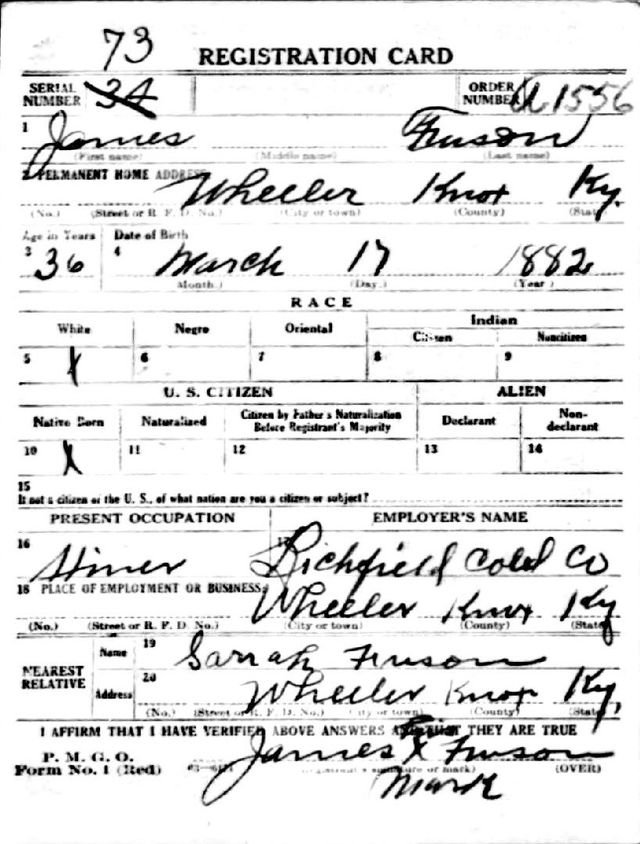 73
REGISTRATION CARD
SERIAL NUMBER 34 ORDER NUMBER A1556
1 James Fuson
(First name) (Middle name) (Last name)
2 PERMANENT HOME ADDRESS Wheeler Knox Ky.
(No.) (Street or R. F. D. No.) (City or town) (County) (State)
Age in Years Date of Birth
3 36 4 March 17 1882
(Month.) (Day.) (Year)
RACE
White Negro Oriental Indian
Citizen Noncitizen
5 X 6 7 8 9
U. S. CITIZEN ALIEN
Native Born Naturalized Citizen by Father's Naturalization Before Registrant's Majority Declarant Non-declarant
10 X 11 12 13 14
15
If not a citizen of the U. S., of what nation are you a citizen or subject?
PRESENT OCCUPATION EMPLOYER'S NAME
16 Richfield Coal Co
18 PLACE OF EMPLOYMENT OR BUSINESS: Wheeler Knox Ky
(No.) (Street or R. F. D. No.) (City or town) (County) (State)
NEAREST RELATIVE Name 19 Sarrah Fuson
Address 20 Wheeler Knox Ky,
(No.) (Street or R. F. D. No.) (City or town) (County) (State)
I AFFIRM THAT I HAVE VERIFIED ABOVE ANSWERS AND THAT THEY ARE TRUE
P. M. G. O.
Form No. 1 (Red) James X Fuson
(Registrant's signature or mark) (OVER)
Mark